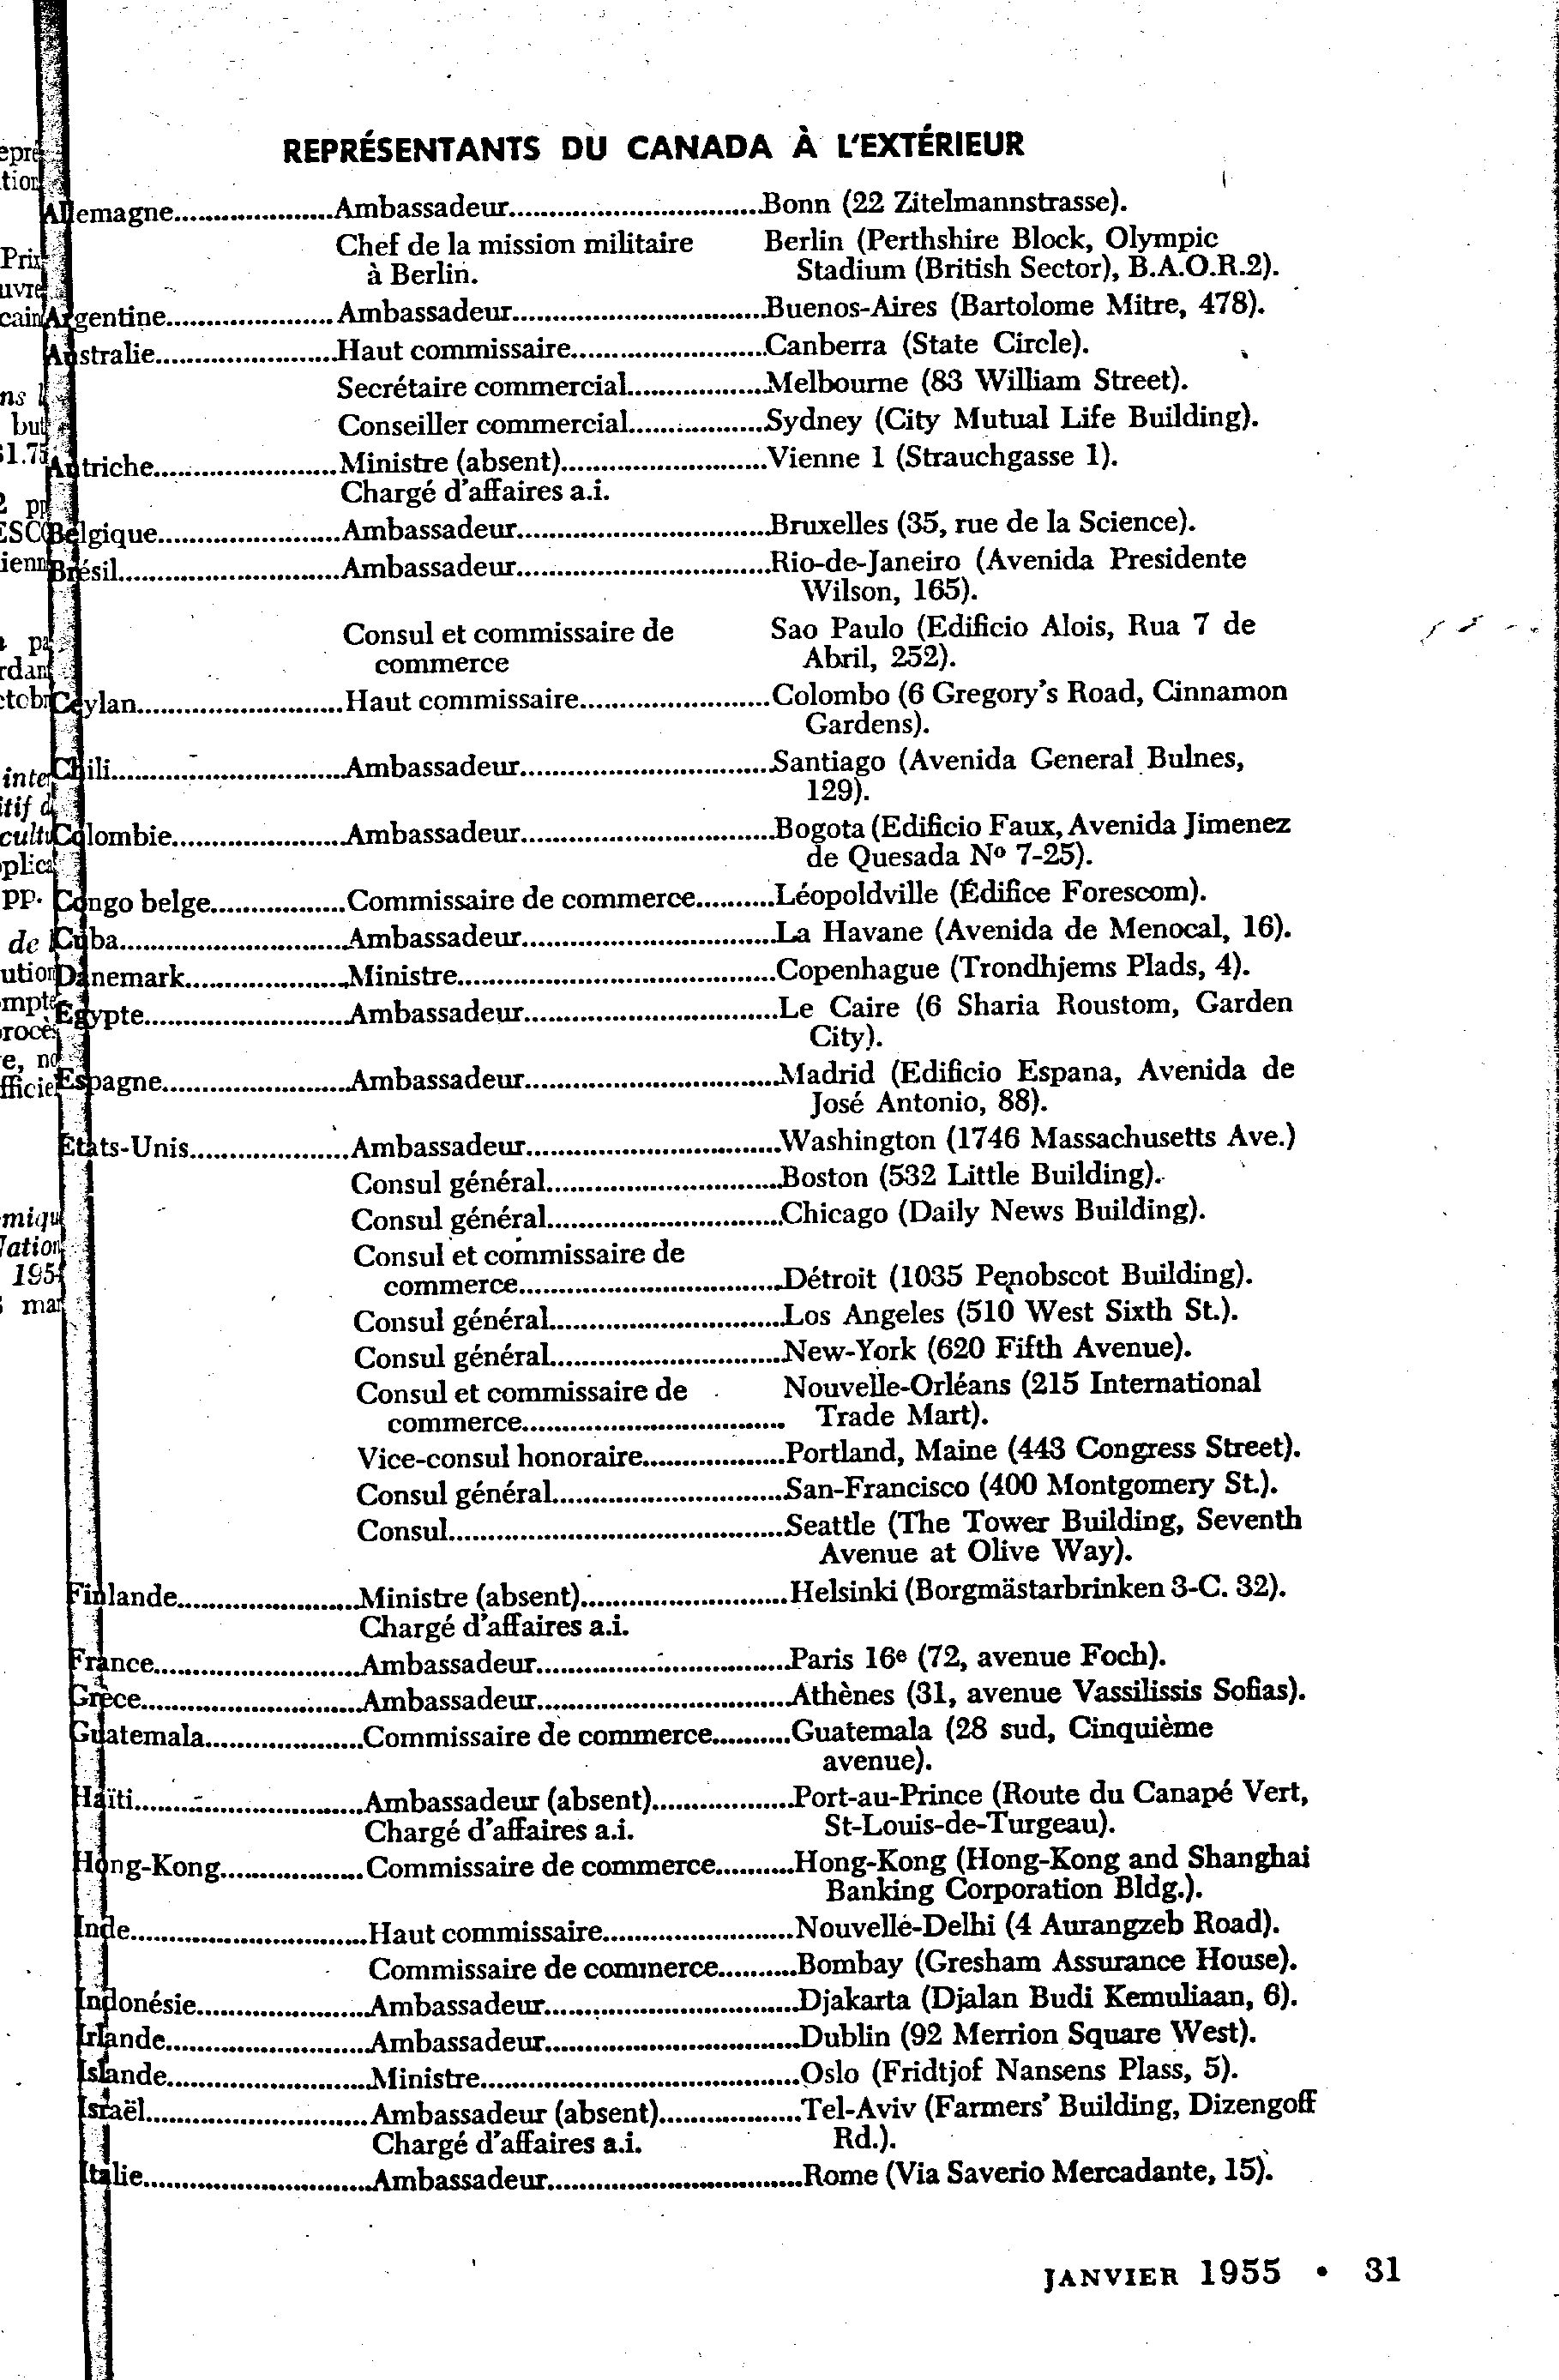 REPRÉSENTANTS DU CANADA À L'EXTÉRIEUR
Allemagne....................Ambassadeur................................Bonn (22 Zitelmannstrasse).
Chef de la mission militaire Berlin (Perthshire Block, Olympic
à Berlin. Stadium (British Sector), B.A.O.R.2).
Argentine.....................Ambassadeur................................Buenos-Aires (Bartolome Mitre, 478).
Australie.......................Haut commissaire.........................Canberra (State Circle).
Secrétaire commercial.................Melbourne (83 William Street).
Conseiller commercial.................Sydney (City Mutual Life Building).
Autriche.......................Ministre (absent)..........................Vienne 1 (Strauchgasse 1).
Chargé d'affaires a.i.
Belgique.......................Ambassadeur................................Bruxelles (35, rue de la Science).
Brésil............................Ambassadeur................................Rio-de-Janeiro (Avenida Presidente
Wilson, 165).
Consul et commissaire de Sao Paulo (Edificio Alois, Rua 7 de
commerce Abril, 252).
Ceylan..........................Haut commissaire........................Colombo (6 Gregory's Road, Cinnamon
Gardens).
Chili.............................Ambassadeur................................Santiago (Avenida General Bulnes,
129).
Colombie......................Ambassadeur................................Bogota (Edificio Faux, Avenida Jimenez
de Quesada Nº 7-25).
Congo belge.................Commissaire de commerce..........Léopoldville (Édifice Forescom).
Cuba.............................Ambassadeur................................La Havane (Avenida de Menocal, 16).
Danemark....................Ministre........................................Copenhague (Trondhjems Plads, 4).
Egypte..........................Ambassadeur................................Le Caire (6 Sharia Roustom, Garden
City).
Espagne........................Ambassadeur................................Madrid (Edificio Espana, Avenida de
José Antonio, 88).
Etats-Unis....................Ambassadeur................................Washington (1746 Massachusetts Ave.)
Consul général..............................Boston (532 Little Building).
Consul général..............................Chicago (Daily News Building).
Consul et commissaire de
commerce.................................Détroit (1035 Penobscot Building).
Consul général..............................Los Angeles (510 West Sixth St.).
Consul général..............................New-York (620 Fifth Avenue).
Consul et commissaire de Nouvelle-Orléans (215 International
commerce................................. Trade Mart).
Vice-consul honoraire..................Portland, Maine (443 Congress Street).
Consul général..............................San-Francisco (400 Montgomery St.).
Consul..........................................Seattle (The Tower Building, Seventh
Avenue at Olive Way).
Finlande.......................Ministre (absent)..........................Helsinki (Borgmästarbrinken 3-C. 32).
Chargé d'affaires a.i.
France..........................Ambassadeur................................Paris 16e (72, avenue Foch).
Grèce............................Ambassadeur................................Athènes (31, avenue Vassilissis Sofias).
Guatemala....................Commissaire de commerce..........Guatemala (28 sud, Cinquième
avenue).
Haïti.............................Ambassadeur (absent)..................Port-au-Prince (Route du Canapé Vert,
Chargé d'affaires a.i. St-Louis-de-Turgeau).
Hong-Kong..................Commissaire de commerce..........Hong-Kong (Hong-Kong and Shanghai
Banking Corporation Bldg.).
Inde..............................Haut commissaire........................Nouvelle-Delhi (4 Aurangzeb Road).
Commissaire de commerce..........Bombay (Gresham Assurance House).
Indonésie.....................Ambassadeur................................Djakarta (Djalan Budi Kemuliaan, 6).
Irlande..........................Ambassadeur................................Dublin (92 Merrion Square West).
Islande..........................Ministre........................................Oslo (Fridtjof Nansens Plass, 5).
Israël............................Ambassadeur (absent)..................Tel-Aviv (Farmers' Building, Dizengoff
Chargé d'affaires a.i. Rd.).
Italie.............................Ambassadeur................................Rome (Via Saverio Mercadante, 15).
JANVIER 1955 • 31